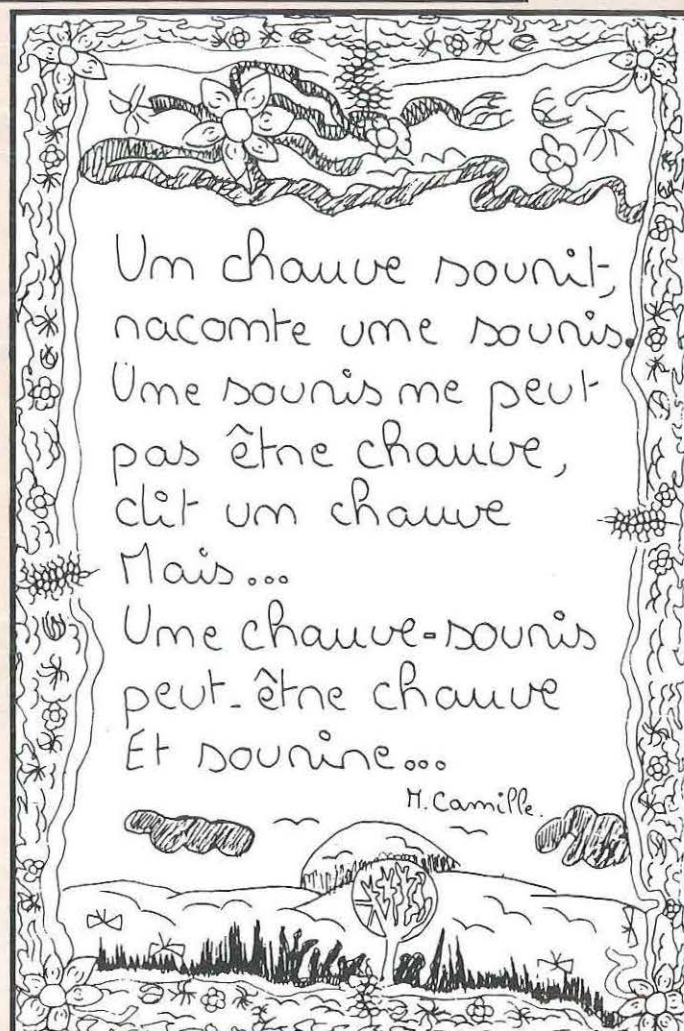 Un chauve sourit,
raconte une souris.
Une souris ne peut
pas être chauve,
dit un chauve
Mais...
Une chauve-souris
peut-être chauve
Et sourire...
M. Camille.